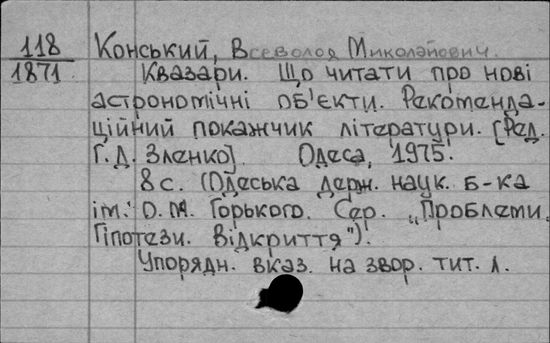 118 Конський, Всеволод Миколайович.
1871 Квазари. Що читати про нові
астрономічні об'єкти. Рекоменда-
ційний покажчик літератури. [Ред.
Г. Д. Зленко]. Одеса, 1975.
8 с. (Одеська держ. наук. б-ка
ім. О. М. Горького. Сер. „Проблеми.
Гіпотези. Відкриття").
Упорядн. вказ. на звор. тит. л.